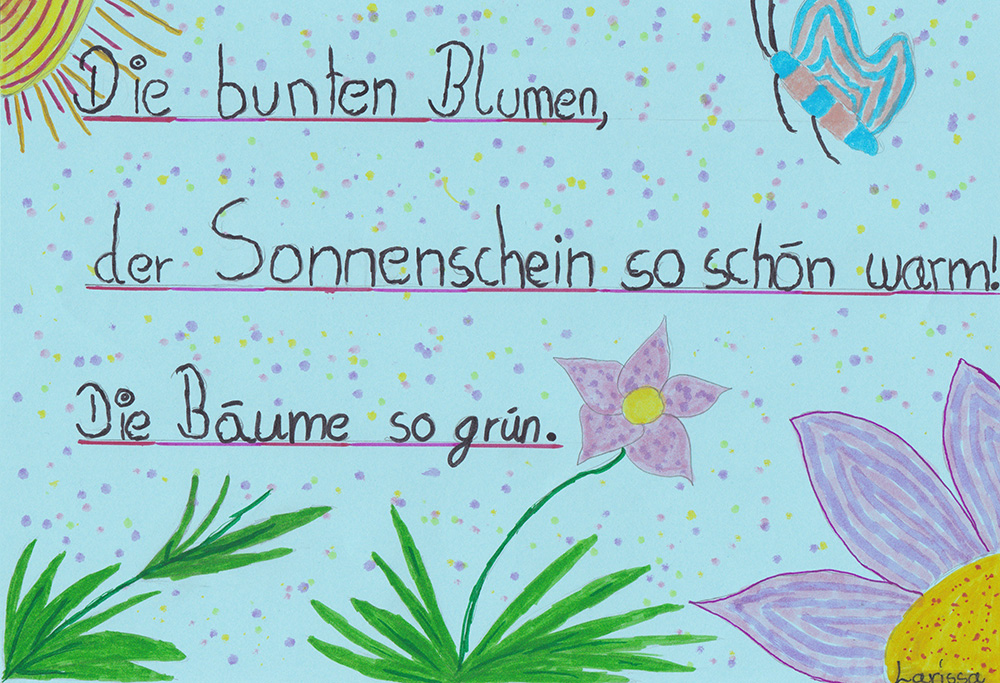 Die bunten Blumen,
der Sonnenschein so schön warm!
Die Bäume so grün.
Larissa